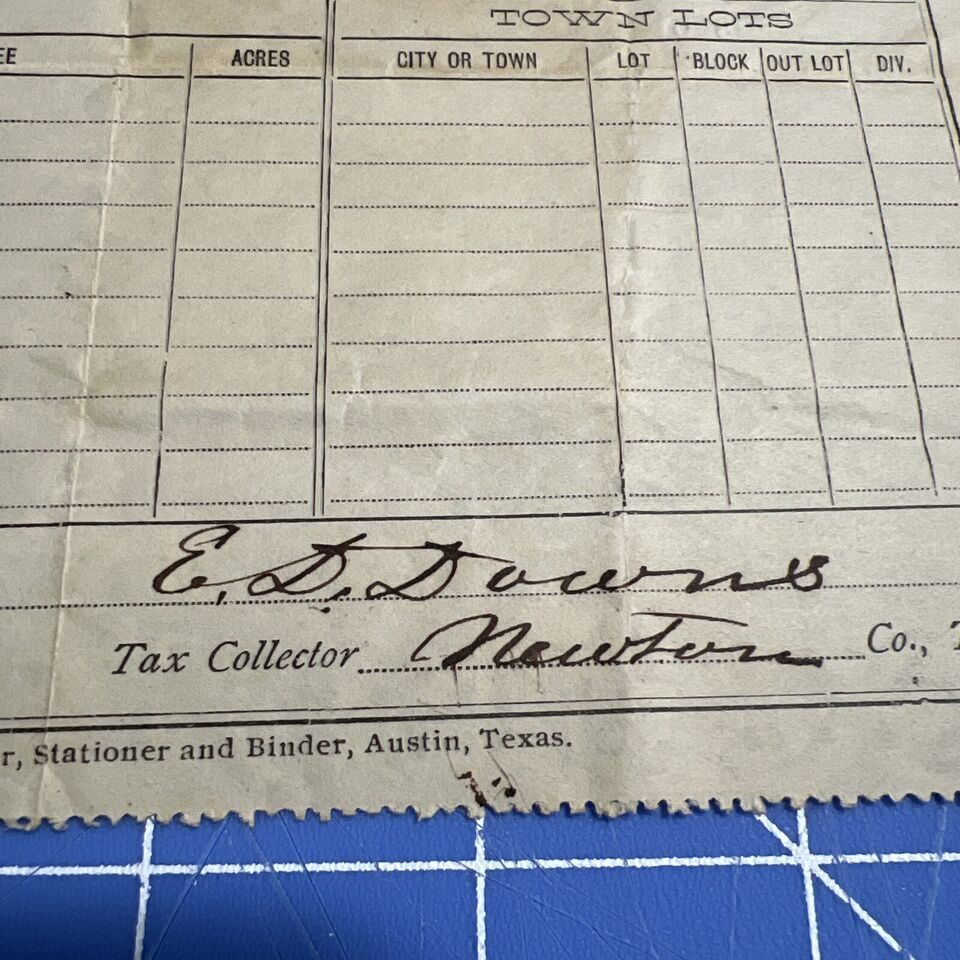 TOWN LOTS
ACRES CITY OR TOWN LOT BLOCK OUT LOT DIV.
E. D. Downs
Tax Collector Newton Co.,
Stationer and Binder, Austin, Texas.